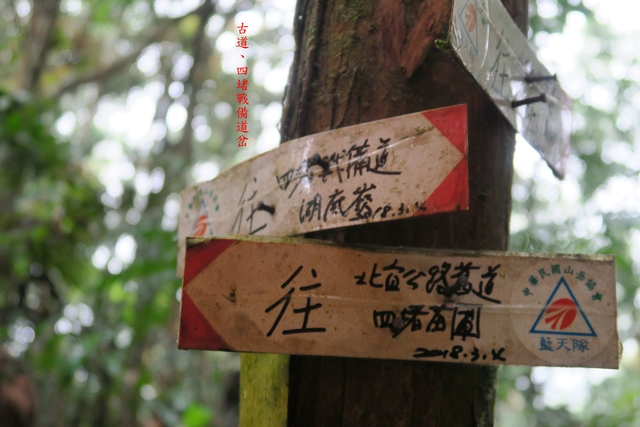 古道、四堵戰備道岔
往
四堵戰備道
湖底嶺
18.3.4
往
北宜公路舊道
四堵苗圃
2018.3.4
中華民國山岳協會
藍天隊